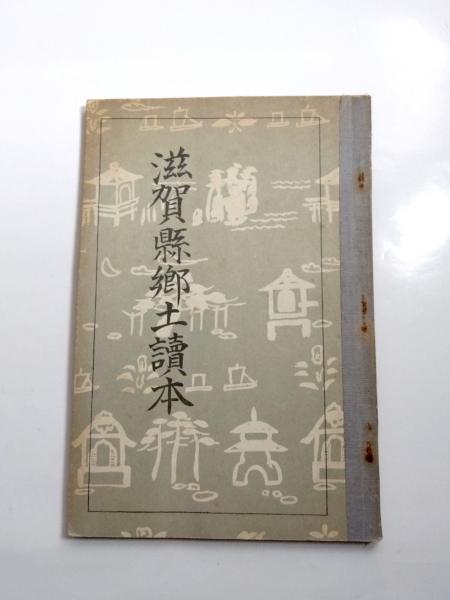 滋賀縣鄉土讀本